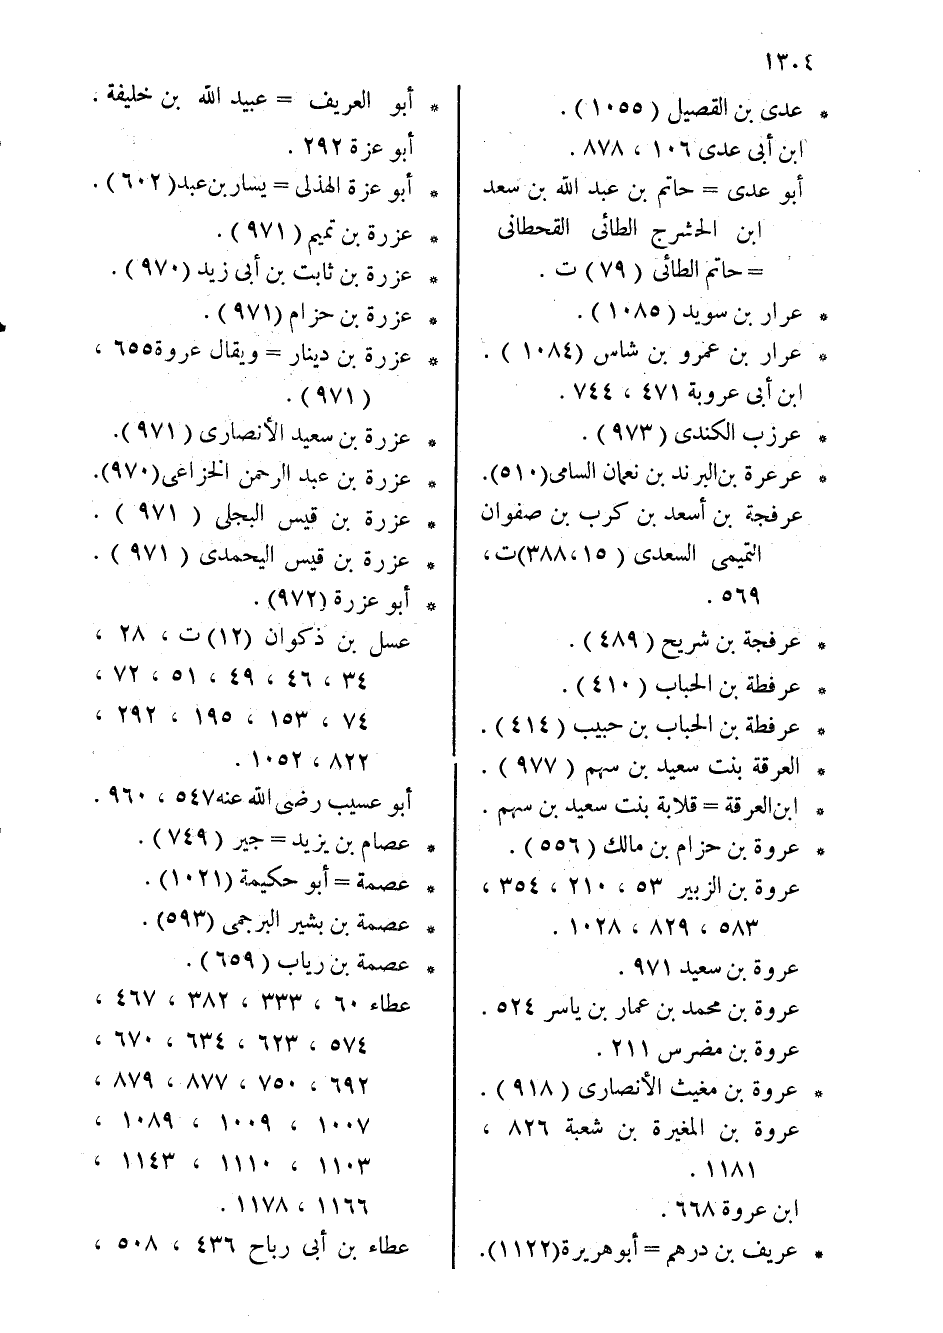 ١٣٠٤
* عدى بن القصيل (١٠٥٥) .
ابن أبى عدى ١٠٦ ، ٨٧٨ .
أبو عدى = حاتم بن عبد الله بن سعد
ابن الحشرج الطائى القحطانى
= حاتم الطائى (٧٩) ت .
* عرار بن سويد (١٠٨٥) .
* عرار بن عمرو بن شاس (١٠٨٤) .
ابن أبى عروبة ٤٧١ ، ٧٤٤ .
* عرزب الكندى (٩٧٣) .
* عرعرة بن البرند بن نعمان السامى (٥١٠).
عرفجة بن أسعد بن كرب بن صفوان
التميمى السعدى (١٥، ٣٨٨)ت ،
٥٦٩ .
* عرفجة بن شريح (٤٨٩) .
* عرفطة بن الحباب (٤١٠) .
* عرفطة بن الحباب بن حبيب (٤١٤) .
* العرقة بنت سعيد بن سهم (٩٧٧) .
* ابن العرقة = قلابة بنت سعيد بن سهم .
* عروة بن حزام بن مالك (٥٥٦) .
عروة بن الزبير ٥٣ ، ٢١٠ ، ٣٥٤ ،
٥٨٣ ، ٨٢٩ ، ١٠٢٨ .
عروة بن سعيد ٩٧١ .
عروة بن محمد بن عمار بن ياسر ٥٢٤ .
عروة بن مضرس ٢١١ .
* عروة بن مغيث الأنصارى (٩١٨) .
عروة بن المغيرة بن شعبة ٨٢٦ ،
١١٨١ .
ابن عروة ٦٦٨ .
* عريف بن درهم = أبو هريرة (١١٢٢).
* أبو العريف = عبيد الله بن خليفة .
أبو عزة ٢٩٢ .
* أبو عزة الهذلى = يسار بن عبد (٦٠٢) .
* عزرة بن تميم (٩٧١) .
* عزرة بن ثابت بن أبى زيد (٩٧٠) .
* عزرة بن حزام (٩٧١) .
* عزرة بن دينار = ويقال عروة ٦٥٥ ،
(٩٧١) .
* عزرة بن سعيد الأنصارى (٩٧١).
* عزرة بن عبد الرحمن الخزاعى (٩٧٠).
* عزرة بن قيس البجلى (٩٧١) .
* عزرة بن قيس اليحمدى (٩٧١) .
* أبو عزرة (٩٧٢).
عسل بن ذكوان (١٢) ت ، ٢٨ ،
٣٤ ، ٤٦ ، ٤٩ ، ٥١ ، ٧٢ ،
٧٤ ، ١٥٣ ، ١٩٥ ، ٢٩٢ ،
٨٢٢ ، ١٠٥٢ .
أبو عسيب رضى الله عنه ٥٤٧ ، ٩٦٠ .
* عصام بن يزيد = جبر (٧٤٩) .
* عصمة = أبو حكيمة (١٠٢١) .
* عصمة بن بشير البرجمى (٥٩٣).
* عصمة بن رياب (٦٥٩) .
عطاء ٦٠ ، ٣٣٣ ، ٣٨٢ ، ٤٦٧ ،
٥٧٤ ، ٦٢٣ ، ٦٣٤ ، ٦٧٠ ،
٦٩٢ ، ٧٥٠ ، ٨٧٧ ، ٨٧٩ ،
١٠٠٧ ، ١٠٠٩ ، ١٠٨٩ ،
١١٠٣ ، ١١١٠ ، ١١٤٣ ،
١١٦٦ ، ١١٧٨ .
عطاء بن أبى رباح ٤٣٦ ، ٥٠٨ ،